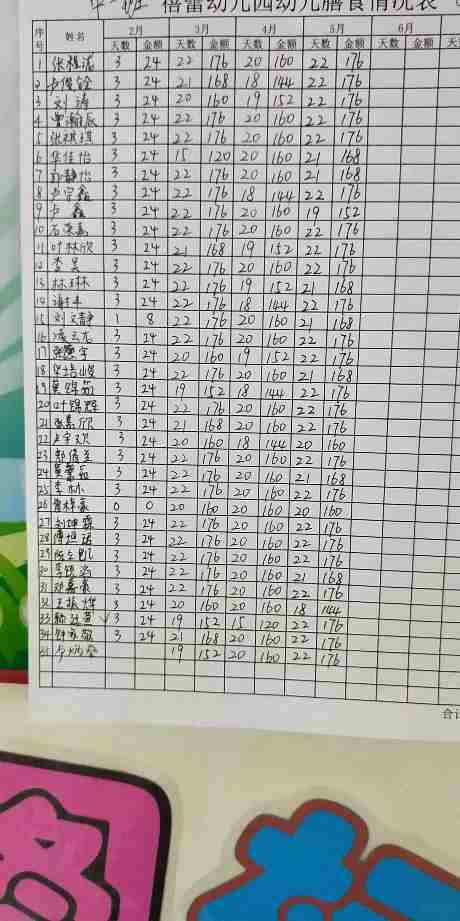 中一班 蓓蕾幼儿园幼儿膳食情况表
序号 姓名 2月 3月 4月 5月 6月
天数 金额 天数 金额 天数 金额 天数 金额 天数 金额 天
1 3 24 22 176 20 160 22 176
2 3 24 21 168 18 144 22 176
3 刘涛 3 24 20 160 19 152 22 176
4 曹瀚辰 3 24 22 176 20 160 22 176
5 张祺琪 3 24 22 176 20 160 22 176
6 华佳怡 3 24 15 120 20 160 21 168
7 郭静怡 3 24 22 176 20 160 21 168
8 卢宇鑫 3 24 22 176 18 144 22 176
9 卢鑫 3 24 22 176 20 160 19 152
10 3 24 22 176 20 160 22 176
11 叶林欣 3 24 21 168 19 152 22 176
12 李昊 3 24 22 176 20 160 22 176
13 林琳 3 24 22 176 19 152 21 168
14 谢丰 3 24 22 176 18 144 22 176
15 刘文静 1 8 22 176 20 160 21 168
16 凌云龙 3 24 22 176 20 160 22 176
17 3 24 20 160 19 152 22 176
18 华培峻 3 24 22 176 20 160 21 168
19 3 24 19 152 18 144 22 176
20 叶锦辉 3 24 22 176 20 160 22 176
21 张嘉欣 3 24 21 168 20 160 22 176
22 卢宇欢 3 24 20 160 18 144 20 160
23 3 24 22 176 20 160 22 176
24 3 24 22 176 20 160 21 168
25 李林 3 24 22 176 20 160 22 176
26 曹梓豪 0 0 20 160 20 160 20 160
27 刘坤霖 3 24 22 176 20 160 22 176
28 傅恒诺 3 24 22 176 20 160 22 176
29 3 24 22 176 20 160 22 176
30 3 24 22 176 20 160 21 168
31 邓嘉豪 3 24 22 176 20 160 22 176
32 王振烨 3 24 20 160 20 160 18 144
33 √ 3 24 19 152 15 120 22 176
34 3 24 21 168 20 160 22 176
35 19 152 20 160 22 176
合计